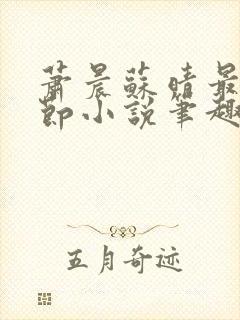 蕭晨蘇晴最
節小說筆趣
五月奇迹